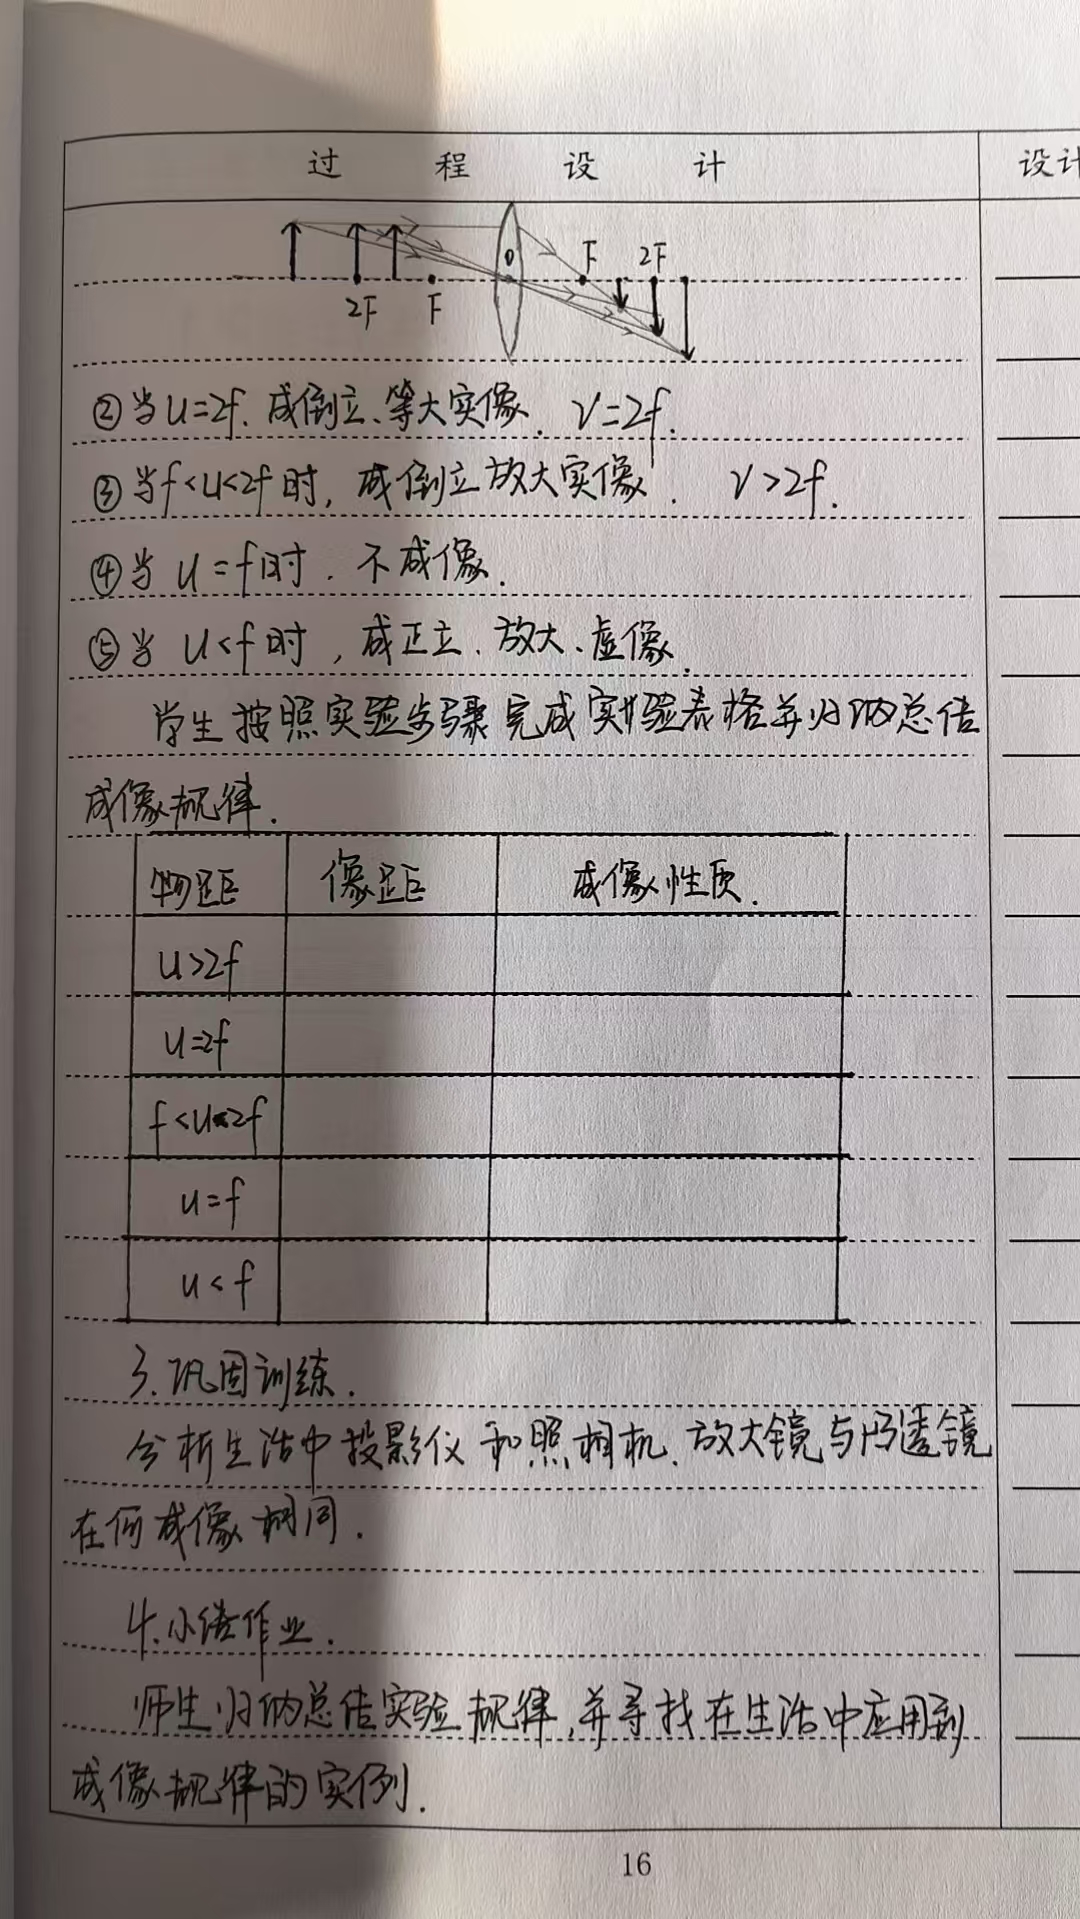 过程设计
设计
O F 2F
2F F
②当u=2f.成倒立、等大实像. v=2f.
③当f<u<2f时,成倒立放大实像. v>2f.
④当u=f时.不成像.
⑤当u<f时,成正立、放大、虚像.
学生按照实验步骤完成实验表格并归纳总结
成像规律.
物距 像距 成像性质.
u>2f
u=2f
f<u<2f
u=f
u<f
3.巩固训练.
分析生活中投影仪和照相机、放大镜与凸透镜
在何成像相同.
4.小结作业.
师生归纳总结实验规律,并寻找在生活中应用到
成像规律的实例.
16